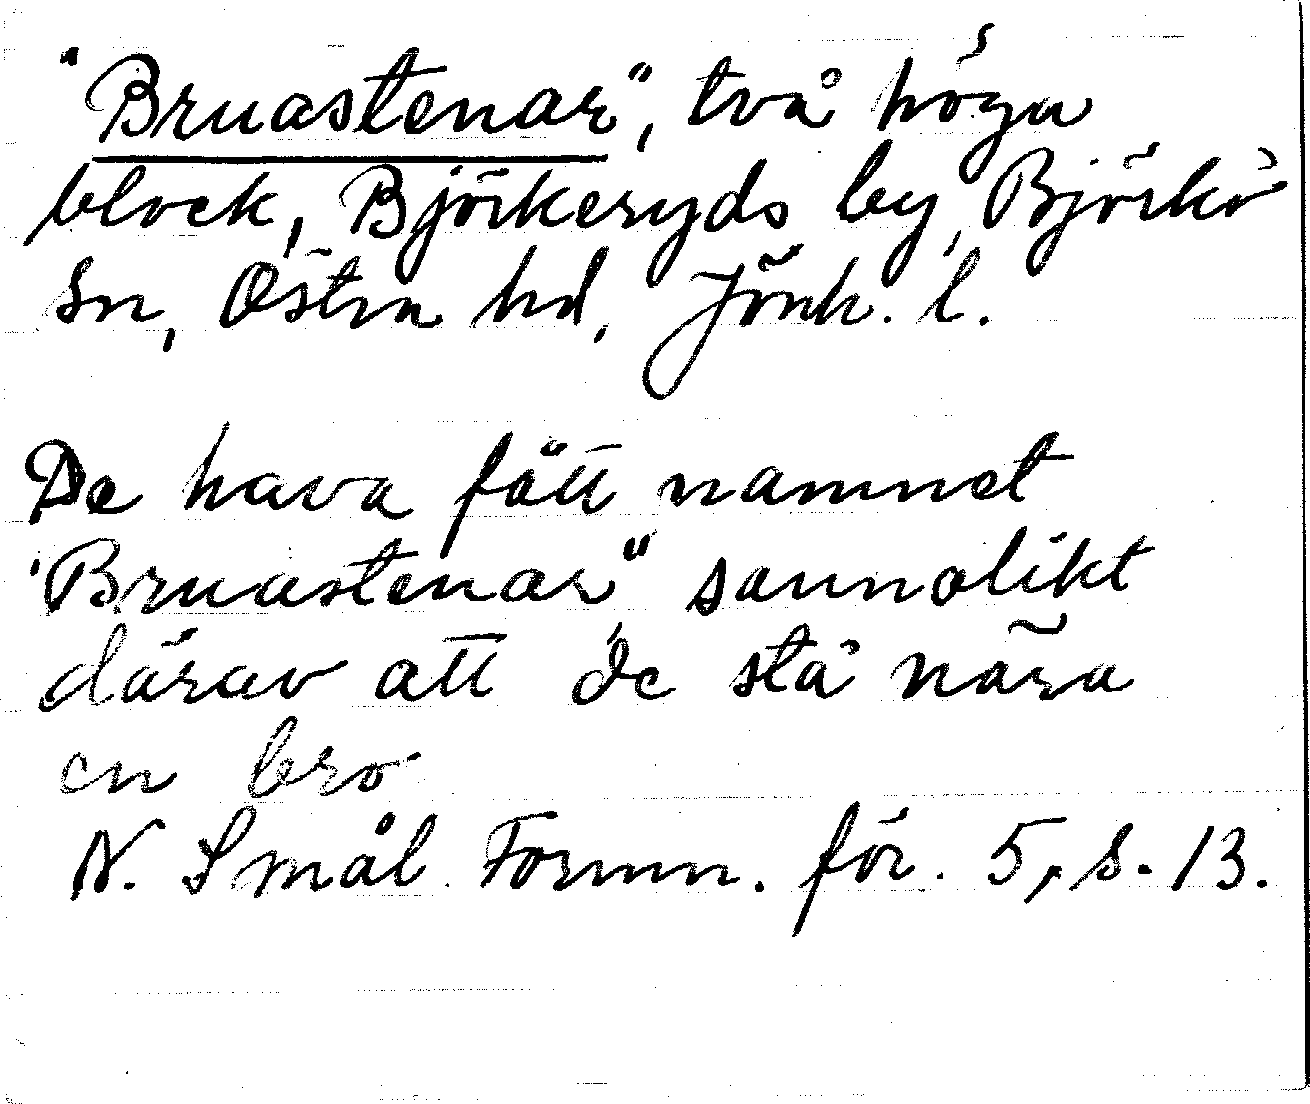 "Bruastenar", två höga
block, Björkeryds by, Björkö
sn, Östra hd, Jönk. l.
De hava fått namnet
"Bruastenar" sannolikt
därav att de stå nära
en bro
N. Smål. Fornm. för. 5, s. 13.